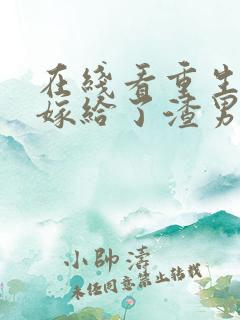 在綫看重生
嫁給了渣男
小帥濤
未经同意禁止转载